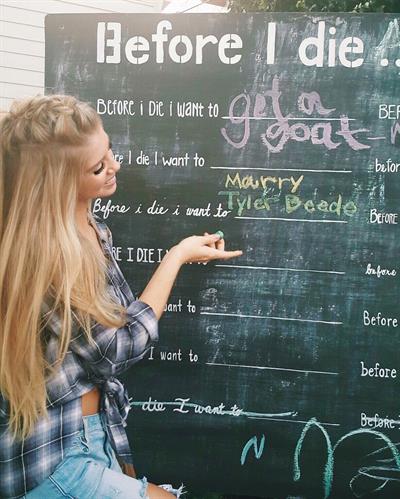 Before I die ..
BEFORE i DiE i WANT to get a goat BEF
Before I die I want to
before
Before i die i want to Marry Tyler Deede BEFORE
RE I DIE I before
ant to Before
I want to before
die I want to Before I